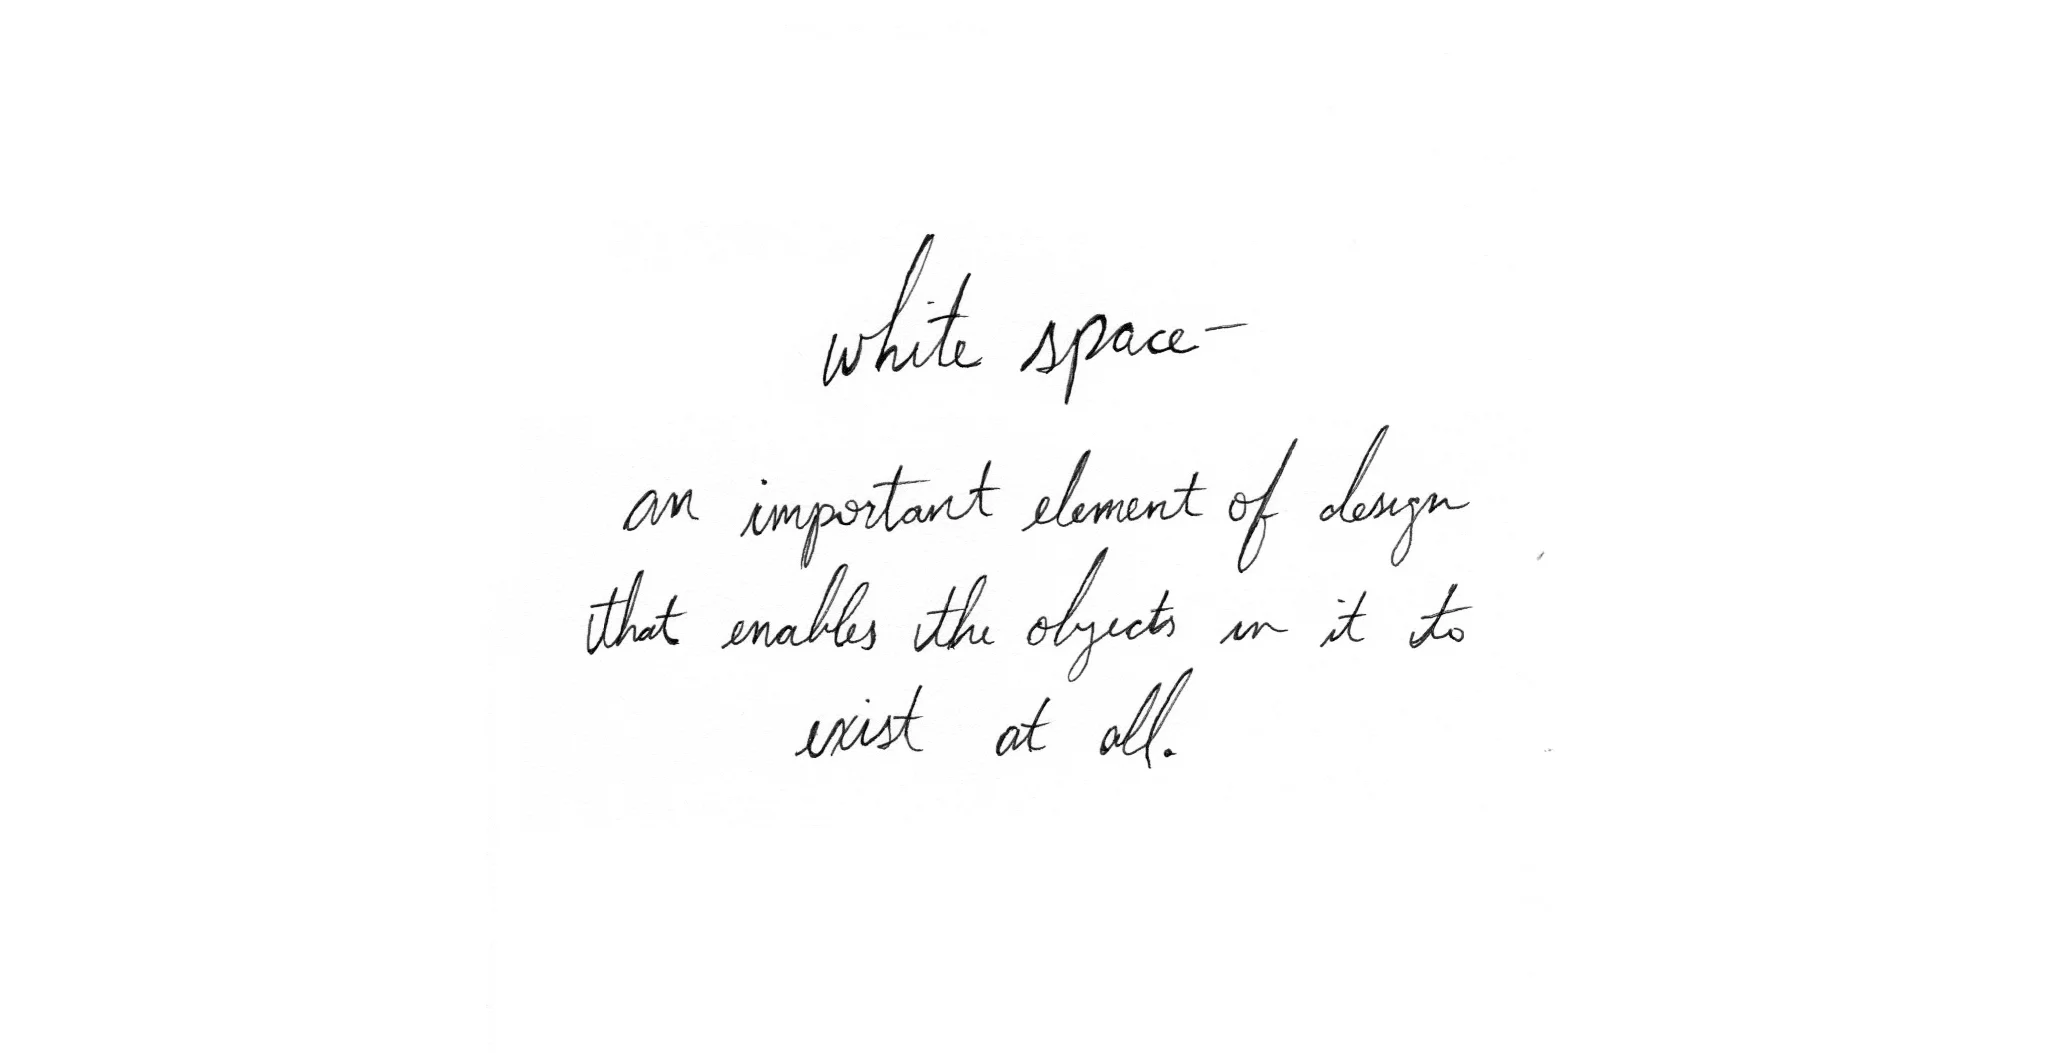 white space-
an important element of design
that enables the objects in it to
exist at all.